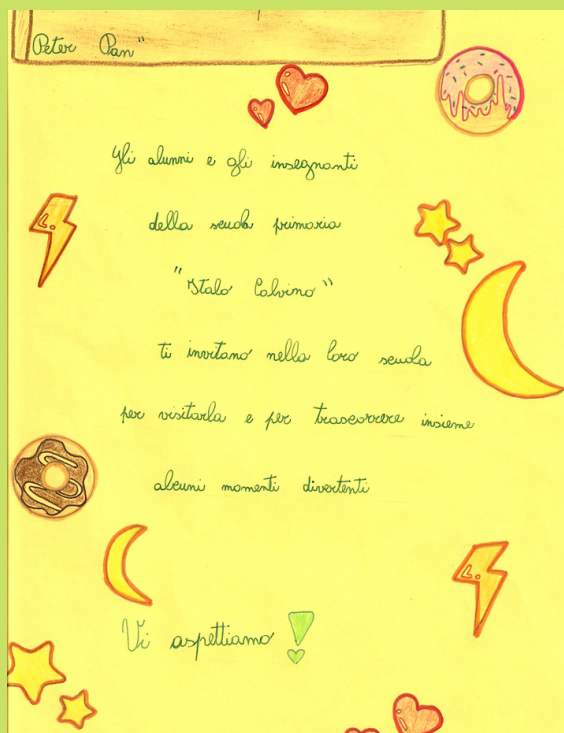 Peter Pan"
Gli alunni e gli insegnanti
della scuola primaria
"Italo Calvino"
ti invitano nella loro scuola
per visitarla e per trascorrere insieme
alcuni momenti divertenti
Vi aspettiamo!